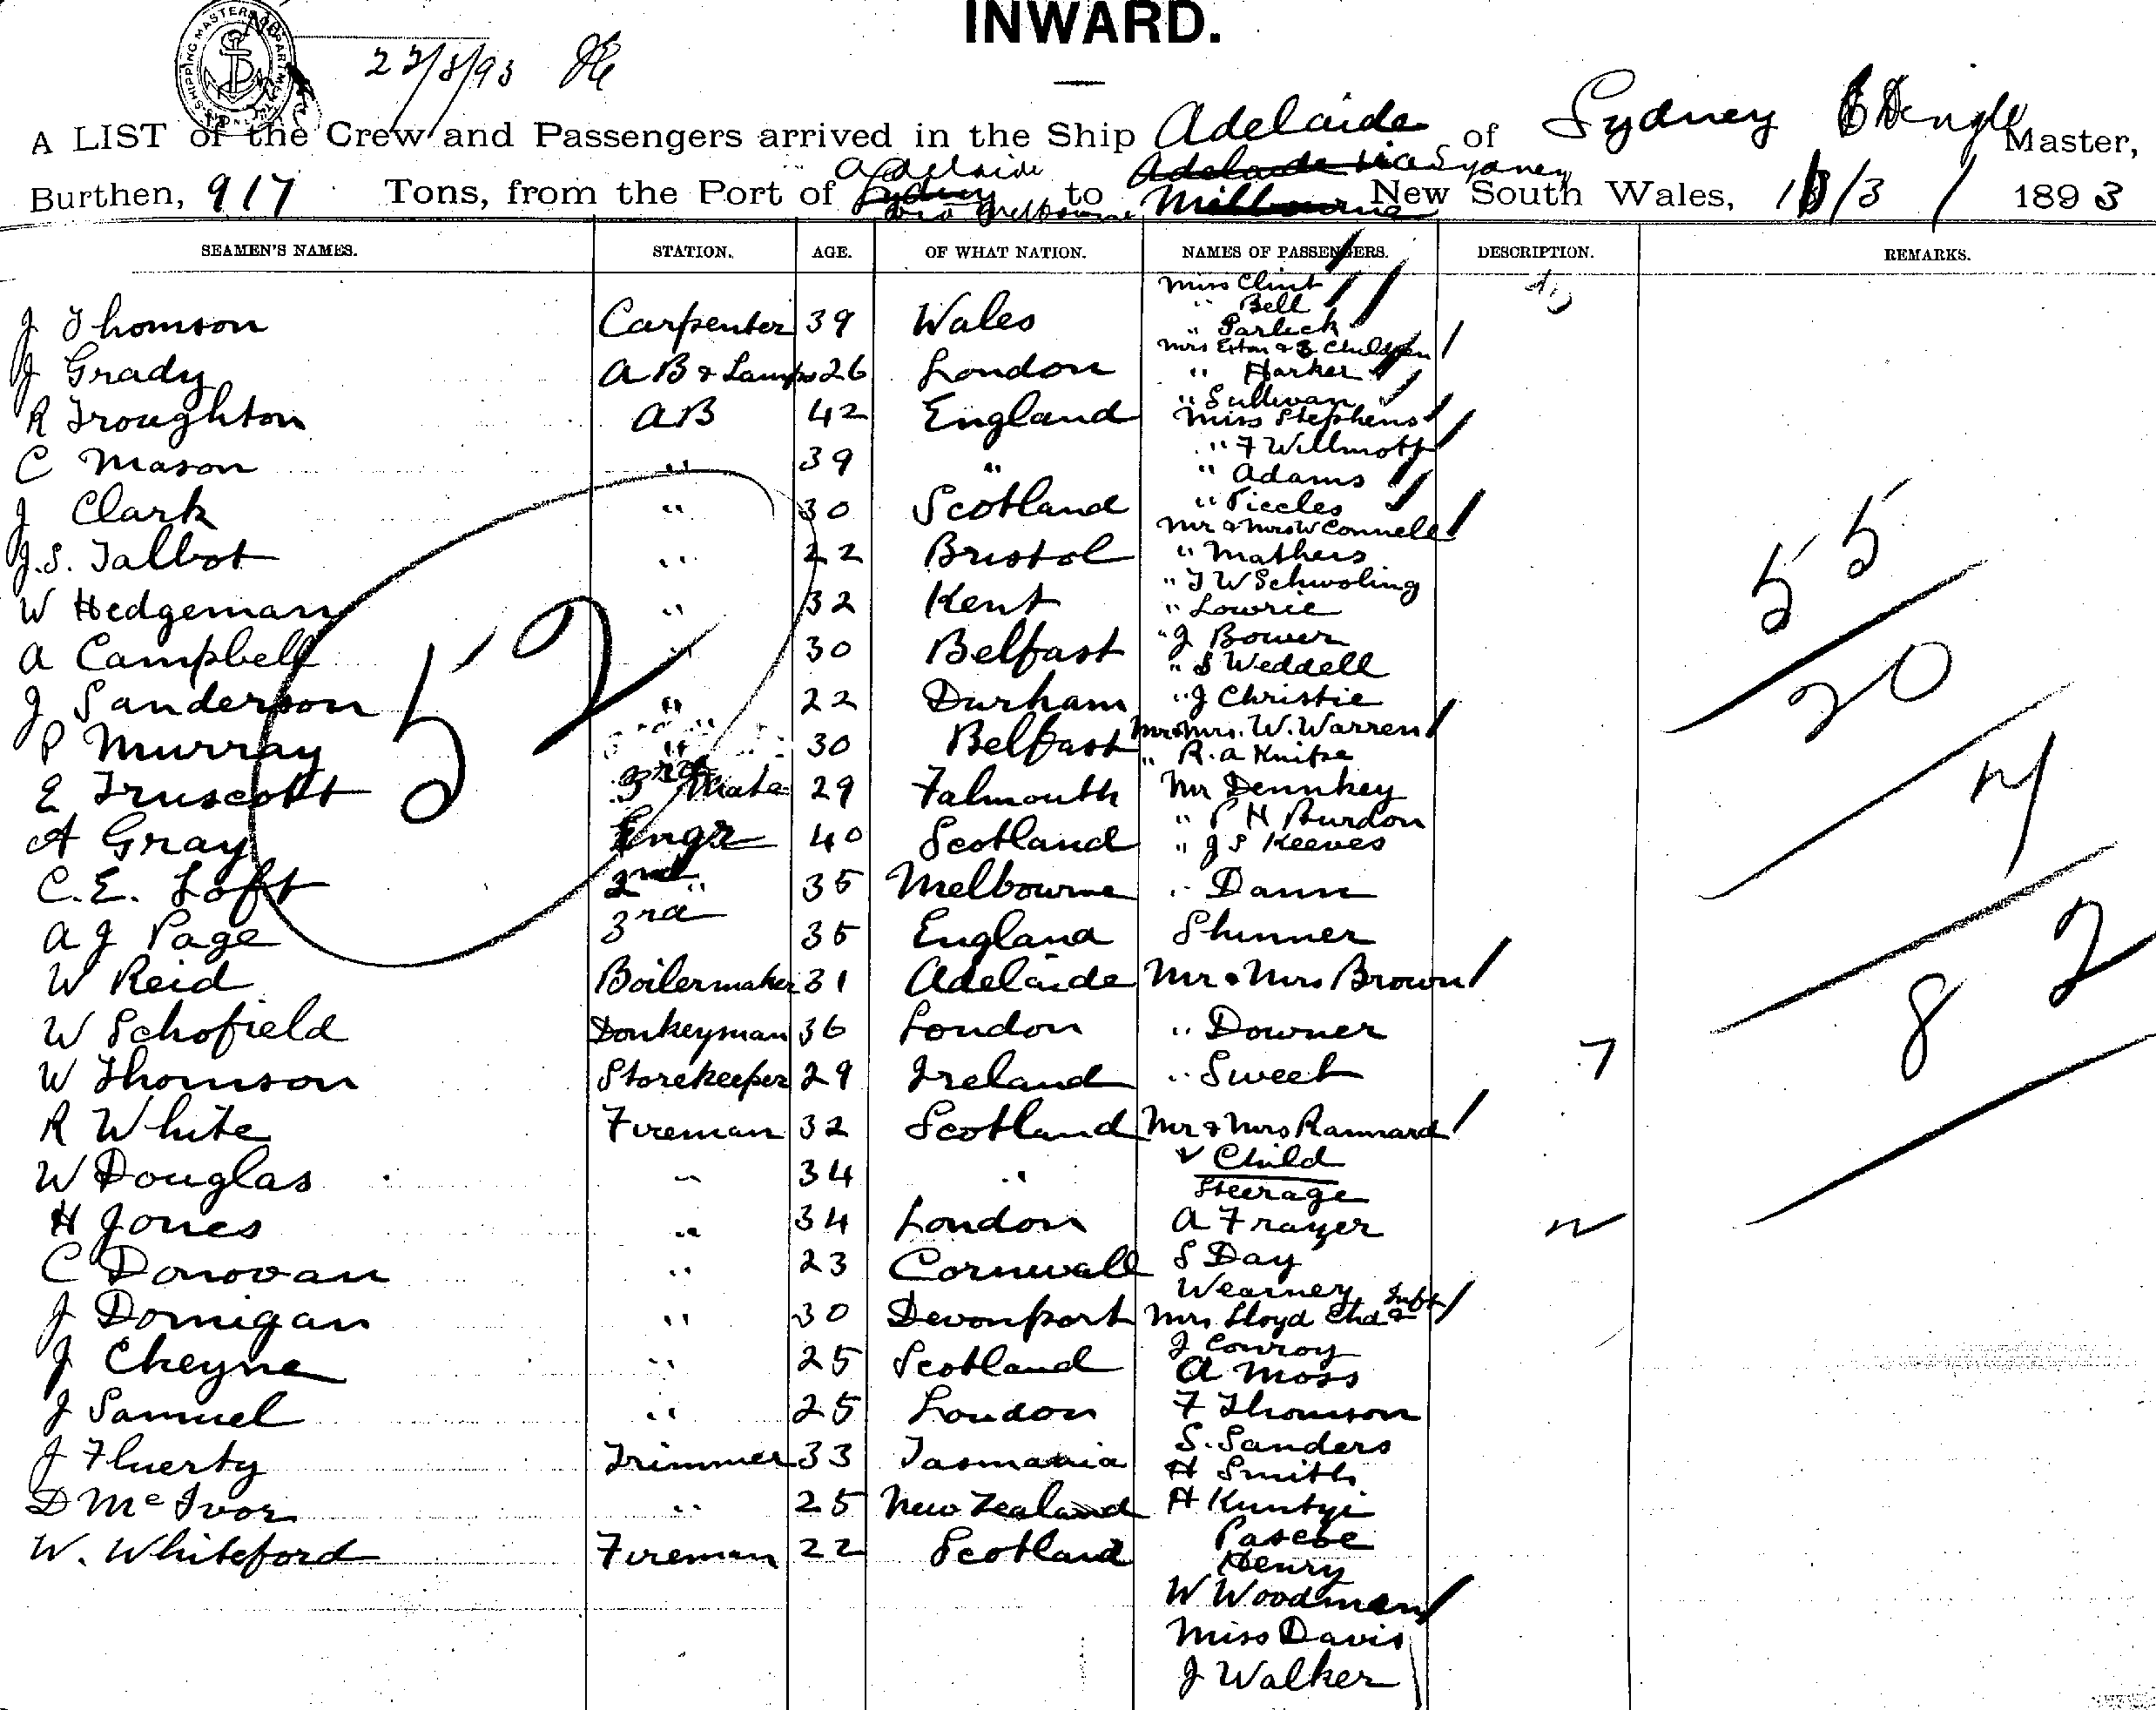 INWARD.
22/3/93
A LIST of the Crew and Passengers arrived in the Ship Adelaide of Sydney Dingle Master,
Adelaide Adelaide via Sydney
Burthen, 917 Tons, from the Port of Sydney to Melbourne New South Wales, 18/3/1893
via Melbourne
SEAMEN'S NAMES. STATION. AGE. OF WHAT NATION. NAMES OF PASSENGERS. DESCRIPTION. REMARKS.
Miss Clint
" Bell
J Thomson Carpenter 39 Wales " Garlick
Mrs & 3 Children
J Grady AB & Lamps 26 London " Harker
" Sullivan
R Troughton AB 42 England Miss Stephens
" F Willmott
C Mason " 39 " " Adams
J Clark " 30 Scotland " Piccles
Mr & Mrs W Connell
J.S. Talbot " 22 Bristol " Mathers
" T W Schwoling
W Hedgeman " 32 Kent " Lowrie
" J Bower
A Campbell " 30 Belfast " S Weddell
J Sanderson " 22 Durham " J Christie
Mr & Mrs. W. Warren
P Murray " 30 Belfast " R. A Knitze
E Truscott 3rd Mate 29 Falmouth Mr Dennkey
" P H Burdon
A Gray Engr 40 Scotland " J S Keeves
C.E. Loft 2nd " 35 Melbourne " Dann
A J Page 3rd 35 England Shinner
W Reid Boilermaker 31 Adelaide Mr & Mrs Brown
W Schofield Donkeyman 36 London " Downer
W Thomson Storekeeper 29 Ireland " Sweet 7
R White Fireman 32 Scotland Mr & Mrs Rannard
& Child
W Douglas " 34 " Steerage
H Jones " 34 London A Frayer
C Donovan " 23 Cornwall S Day
Wearney
J Dornigan " 30 Devonport Mrs Lloyd Chd & Inft
J Conroy
J Cheyne " 25 Scotland A Moss
J Samuel " 25 London F Thomson
S. Sanders
J Fluerty Trimmer 33 Tasmania H Smith
D McIvor " 25 New Zealand H Kuntyi
Pascoe
W. Whiteford Fireman 22 Scotland Henry
W Woodman
Miss Davis
J Walker
52
55
20
7
82